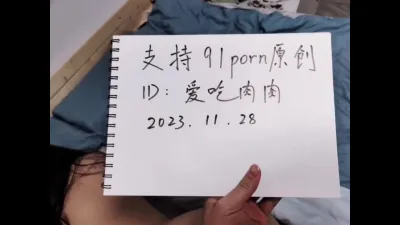 支持91porn原創
ID: 爱吃肉肉
2023.11.28